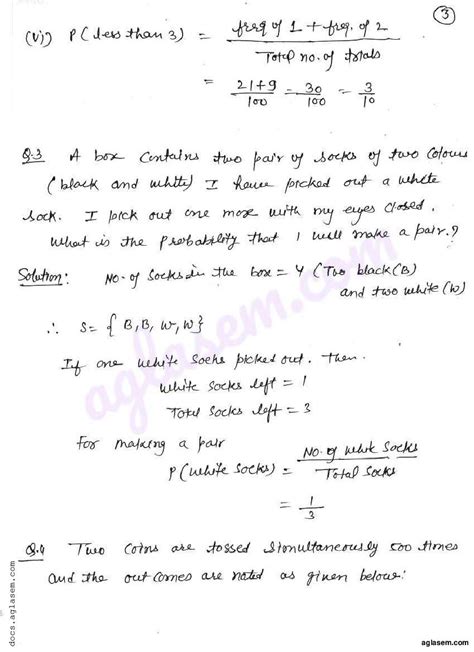 3
(vi) P(less than 3) = freq of 1 + freq. of 2
Total no. of trials
= 21+9 = 30 = 3
100 100 10
Q.3 A box contains two pair of socks of two colours
(black and white) I have picked out a white
sock. I pick out one more with my eyes closed.
What is the probability that I will make a pair.?
Solution: No. of socks in the box = 4 (Two black(B)
and two white (W)
∴ S = { B, B, W, W}
If one white socks picked out. then.
white socks left = 1
Total socks left = 3
For making a pair
P(white socks) = No. of white socks
Total socks
= 1
3
Q.4 Two coins are tossed simultaneously 500 times
and the out comes are noted as given below:
aglasem.com
docs.aglasem.com
aglasem.com